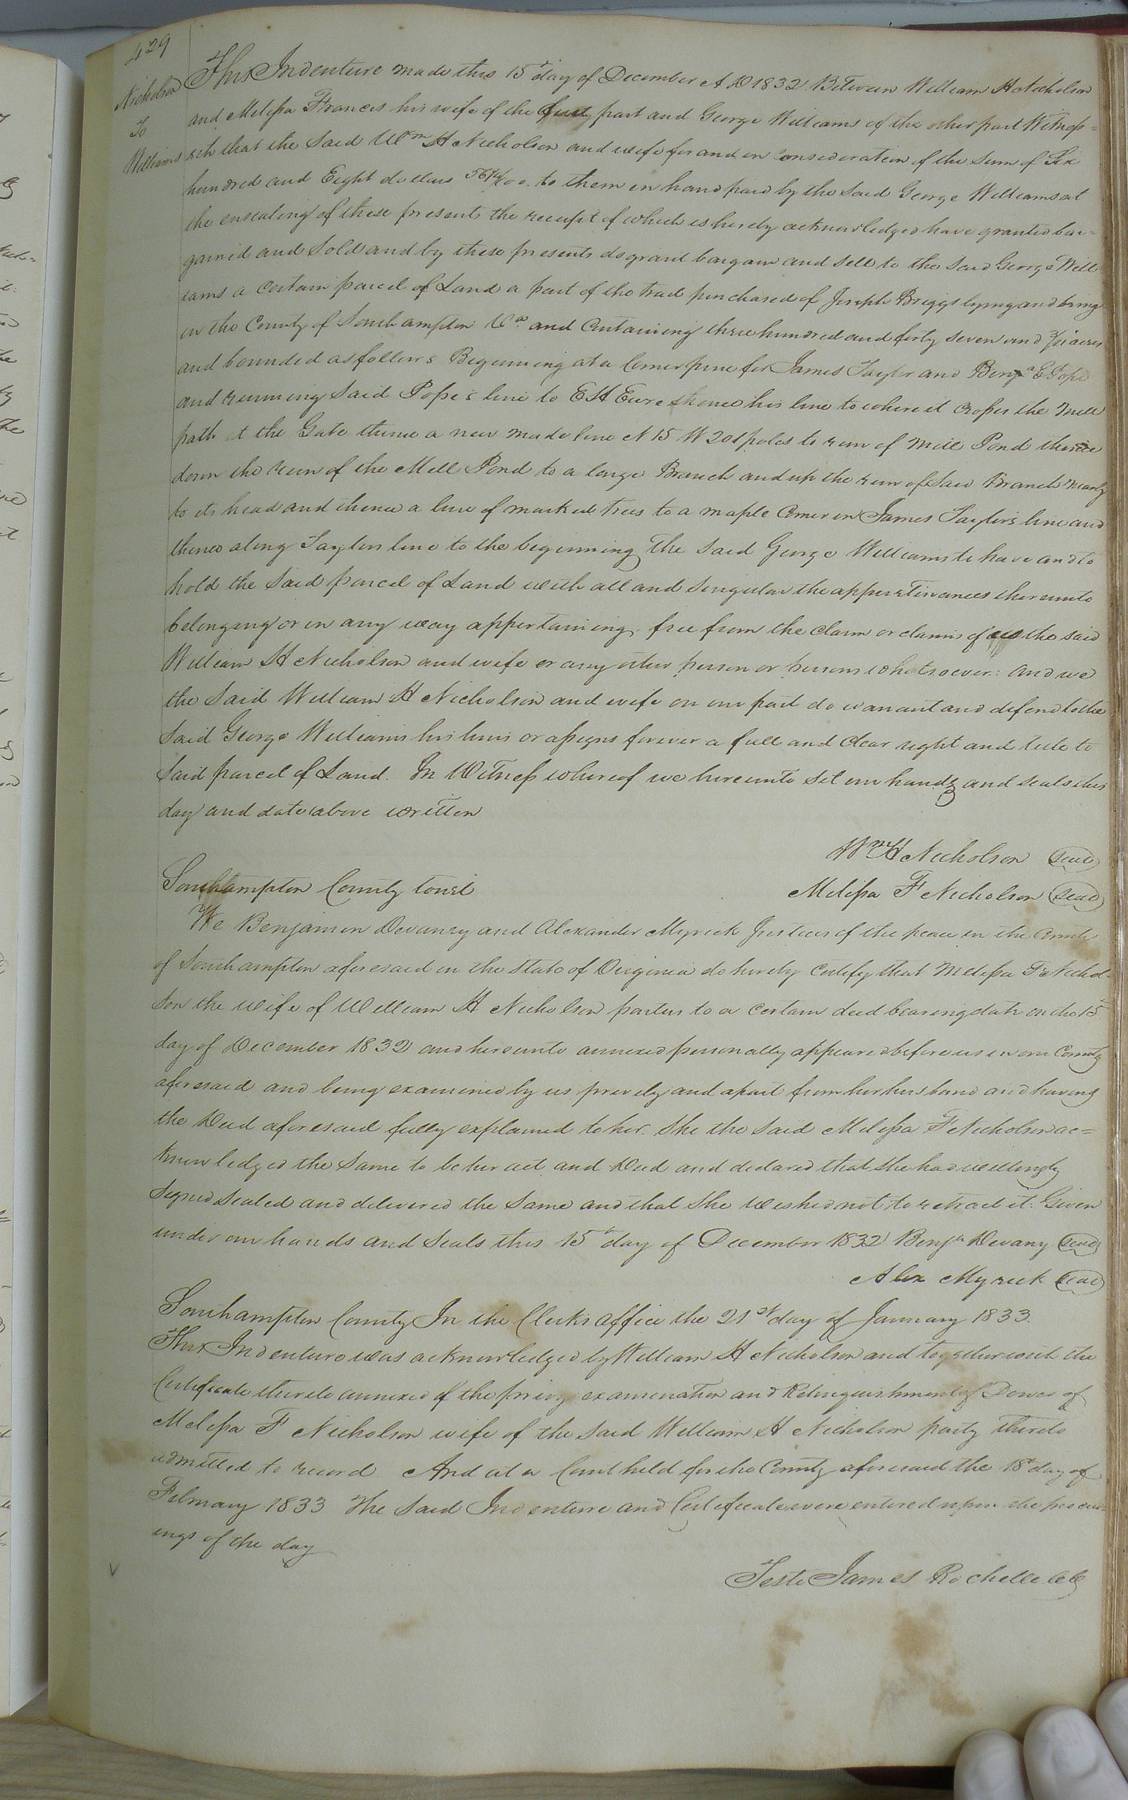 429
Nicholson
To
Williams
This Indenture made this 15th day of December A D 1832 Between William H Nicholson
and Melissa Francis his wife of the first part and George Williams of the other part Witness=
eth that the Said Wm H Nicholson and wife for and in consideration of the Sum of Six
hundred and Eight dollars to them in hand paid by the Said George Williams at
the ensealing of these present the receipt of which is hereby acknowledged have granted bar=
gained and Sold and by these presents do grant bargain and sell to the Said George Will
iams a Certain parcel of Land a part of the tract purchased of Joseph Briggs lying and being
in the County of Southampton Va and Containing three hundred and forty seven and acres
and bounded as follows Beginning at a Corner pine for James Taylor and Benja E Pope
and running Said Pope's line to E H Eure thence his line to where it crosses the mill
path at the Gate thence a new made line N 15 W 201 poles to run of Mill Pond thence
down the run of the Mill Pond to a large Branch and up the run of Said Branch nearly
to its head and thence a line of marked trees to a maple Corner in James Taylor's line and
thence along Taylors line to the beginning The Said George Williams to have and to
hold the Said parcel of Land with all and Singular the appurtinances thereunto
belonging or in any way appertaining free from the claim or claims of us the said
William H Nicholson and wife or any other person or persons whatsoever: and we
the Said William H Nicholson and wife on our part do warrant and defend to the
Said George Williams his heirs or assigns forever a full and Clear right and title to
Said parcel of Land. In Witness whereof we hereunto Set our hands and seals this
day and date above written
Wm H Nicholson (seal)
Southampton County Court
Melissa F Nicholson (seal)
We Benjamin Devany and Alexander Myrick Justices of the peace in the County
of Southampton aforesaid in the State of Virginia do hereby Certify that Melissa F Nichol-
son the wife of William H Nicholson parties to a Certain deed bearing date on the 15th
day of December 1832 and hereunto annexed personally appeared before us in our County
aforesaid and being examined by us privily and apart from her husband and having
the Deed aforesaid fully explained to her. She the Said Melissa F Nicholson ac=
knowledged the Same to be her act and Deed and declared that She had willingly
Signed Sealed and delivered the Same and that She wished not to retract it. Given
under our hands and Seals this 15th day of December 1832 Benja Devany (seal)
Alex Myrick (seal)
Southampton County In the Clerks office the 21st day of January 1833
This Indenture was acknowledged by William H Nicholson and together with the
Certificate thereto annexed of the privy examination and Relinquishment of Dower of
Melissa F Nicholson wife of the Said William H Nicholson party thereto
admitted to record And at a Court held for the County aforesaid the 18th day of
February 1833 The Said Indenture and Certificate were entered upon the proceed
ings of the day
Teste James Rochelle CC